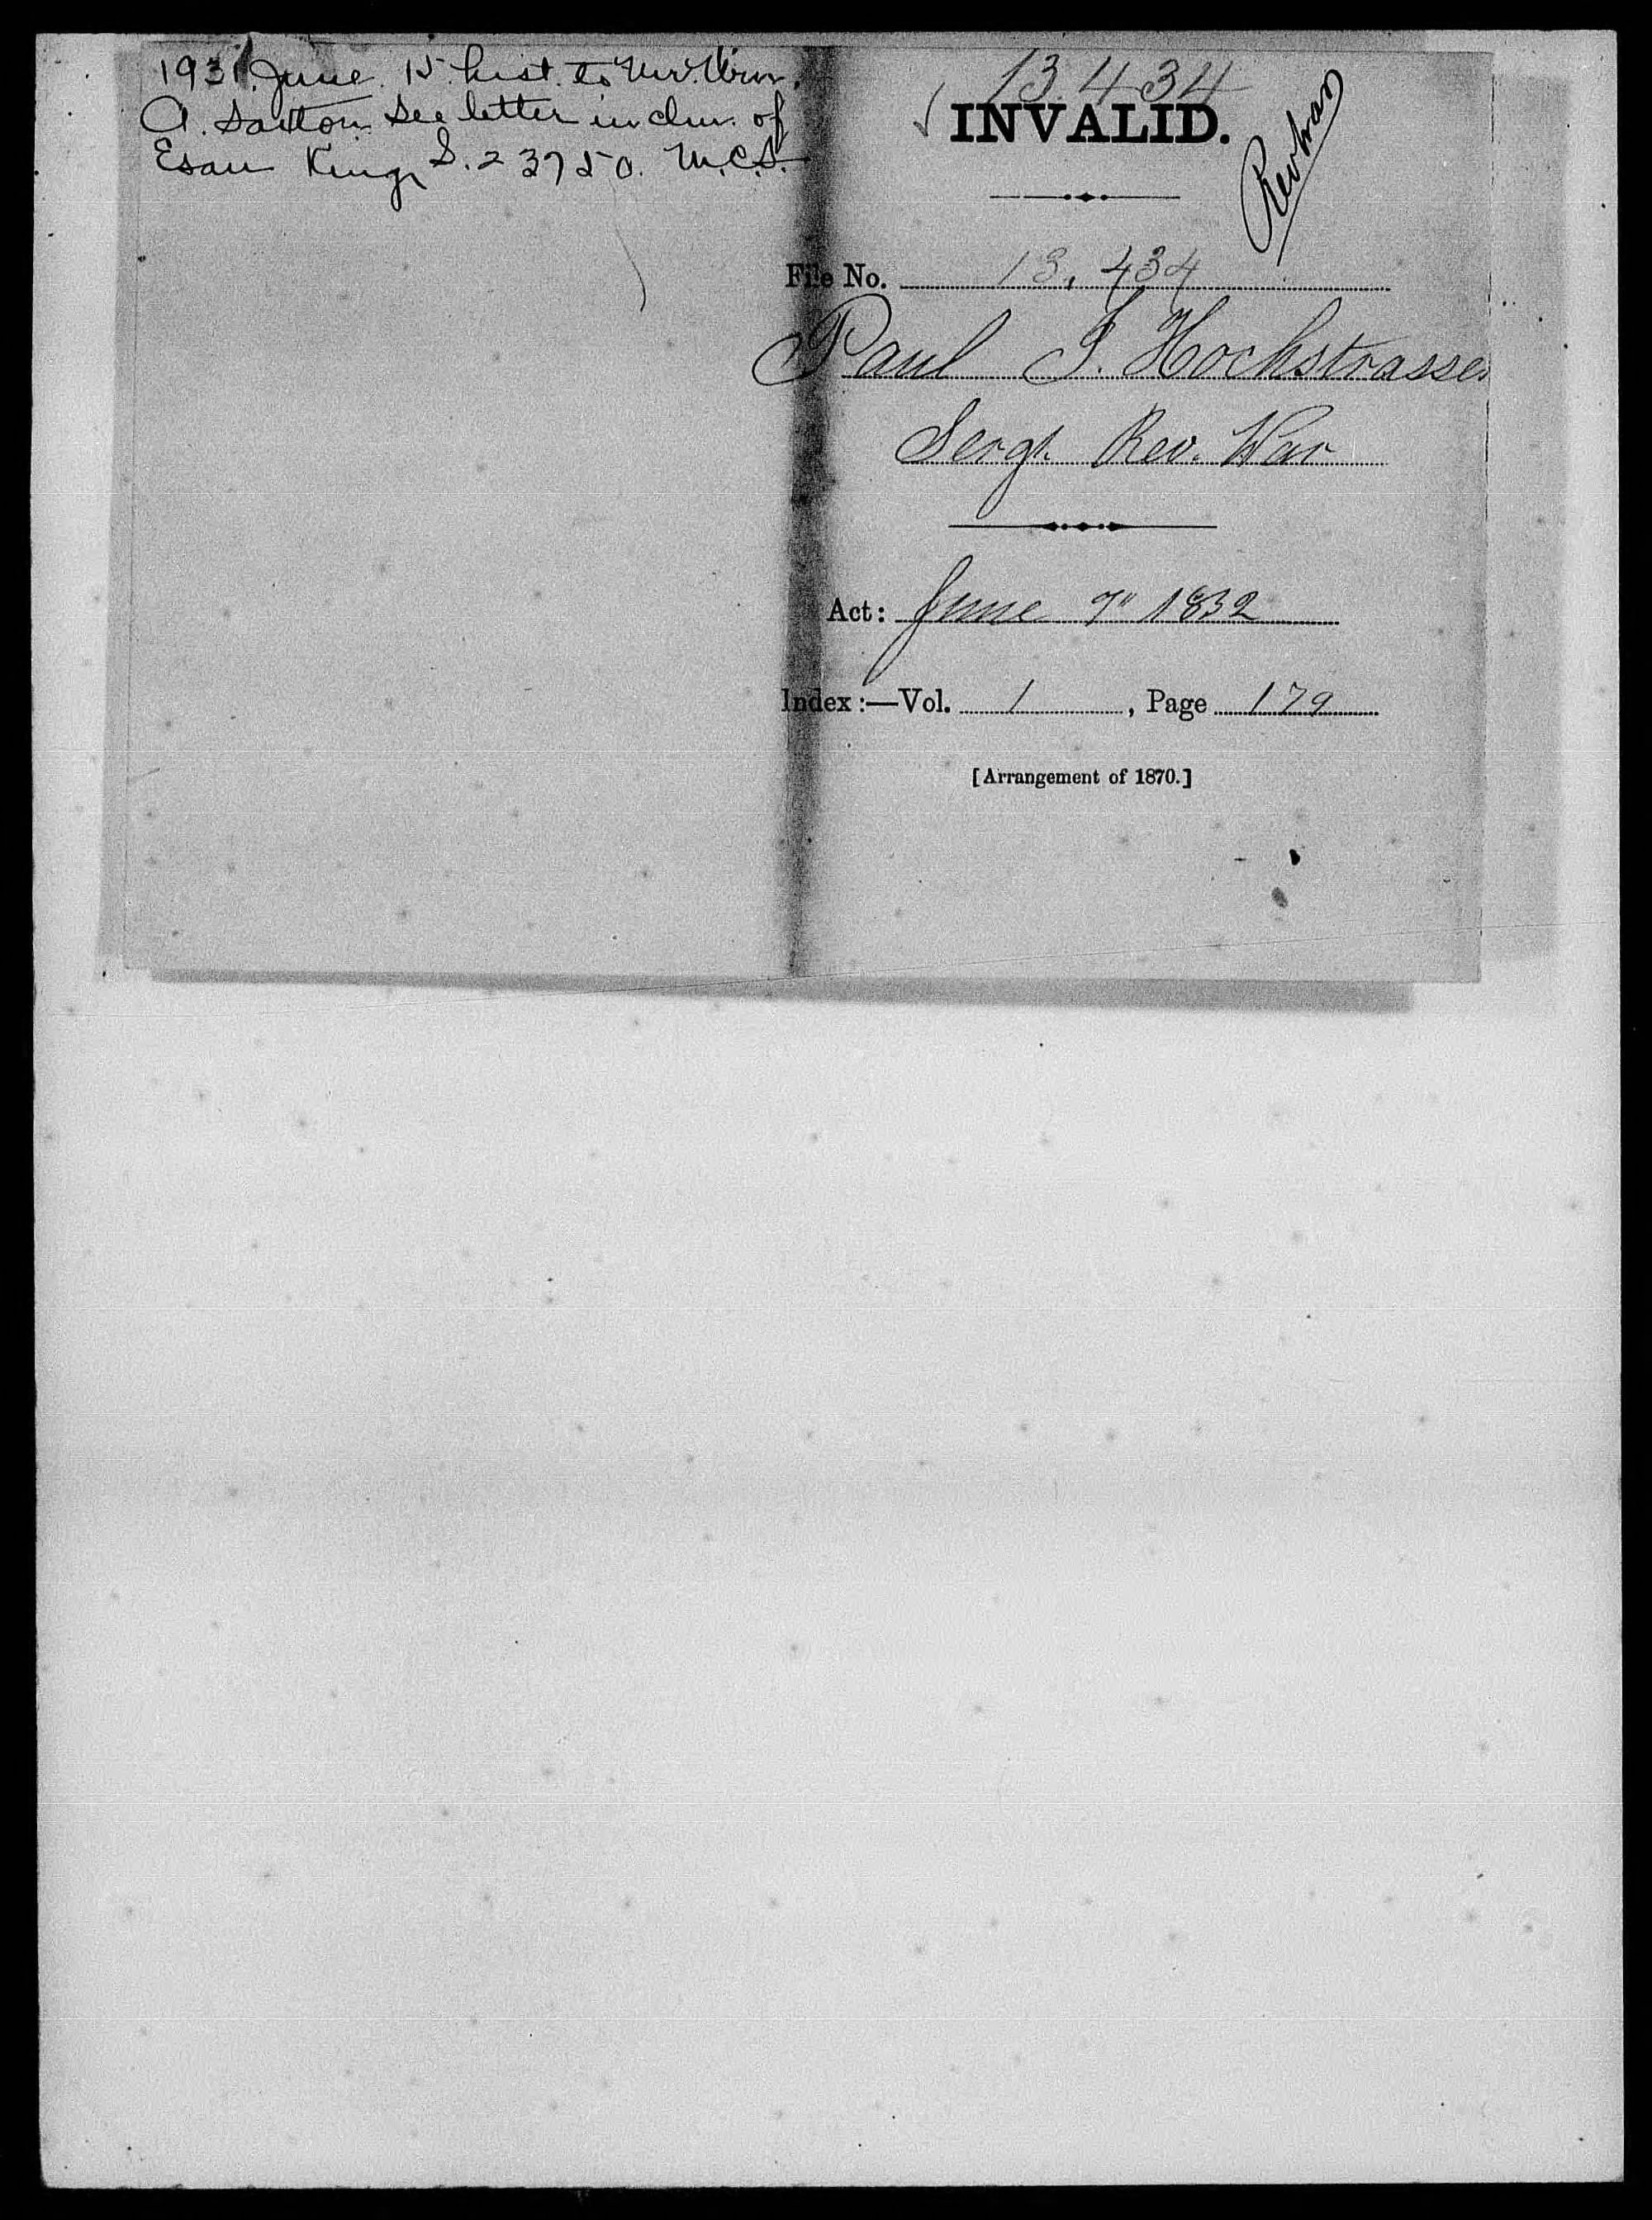 1931 June 15 hist. to Mr. Wm.
A. Saxton See letter in clm. of
Esau King S. 23750. M.C.S.
13.434
INVALID.
Rev War
File No. 13,434
Paul J. Hochstrasser
Sergt. Rev. War
Act: June 7" 1832
Index:—Vol. 1, Page 179
[Arrangement of 1870.]